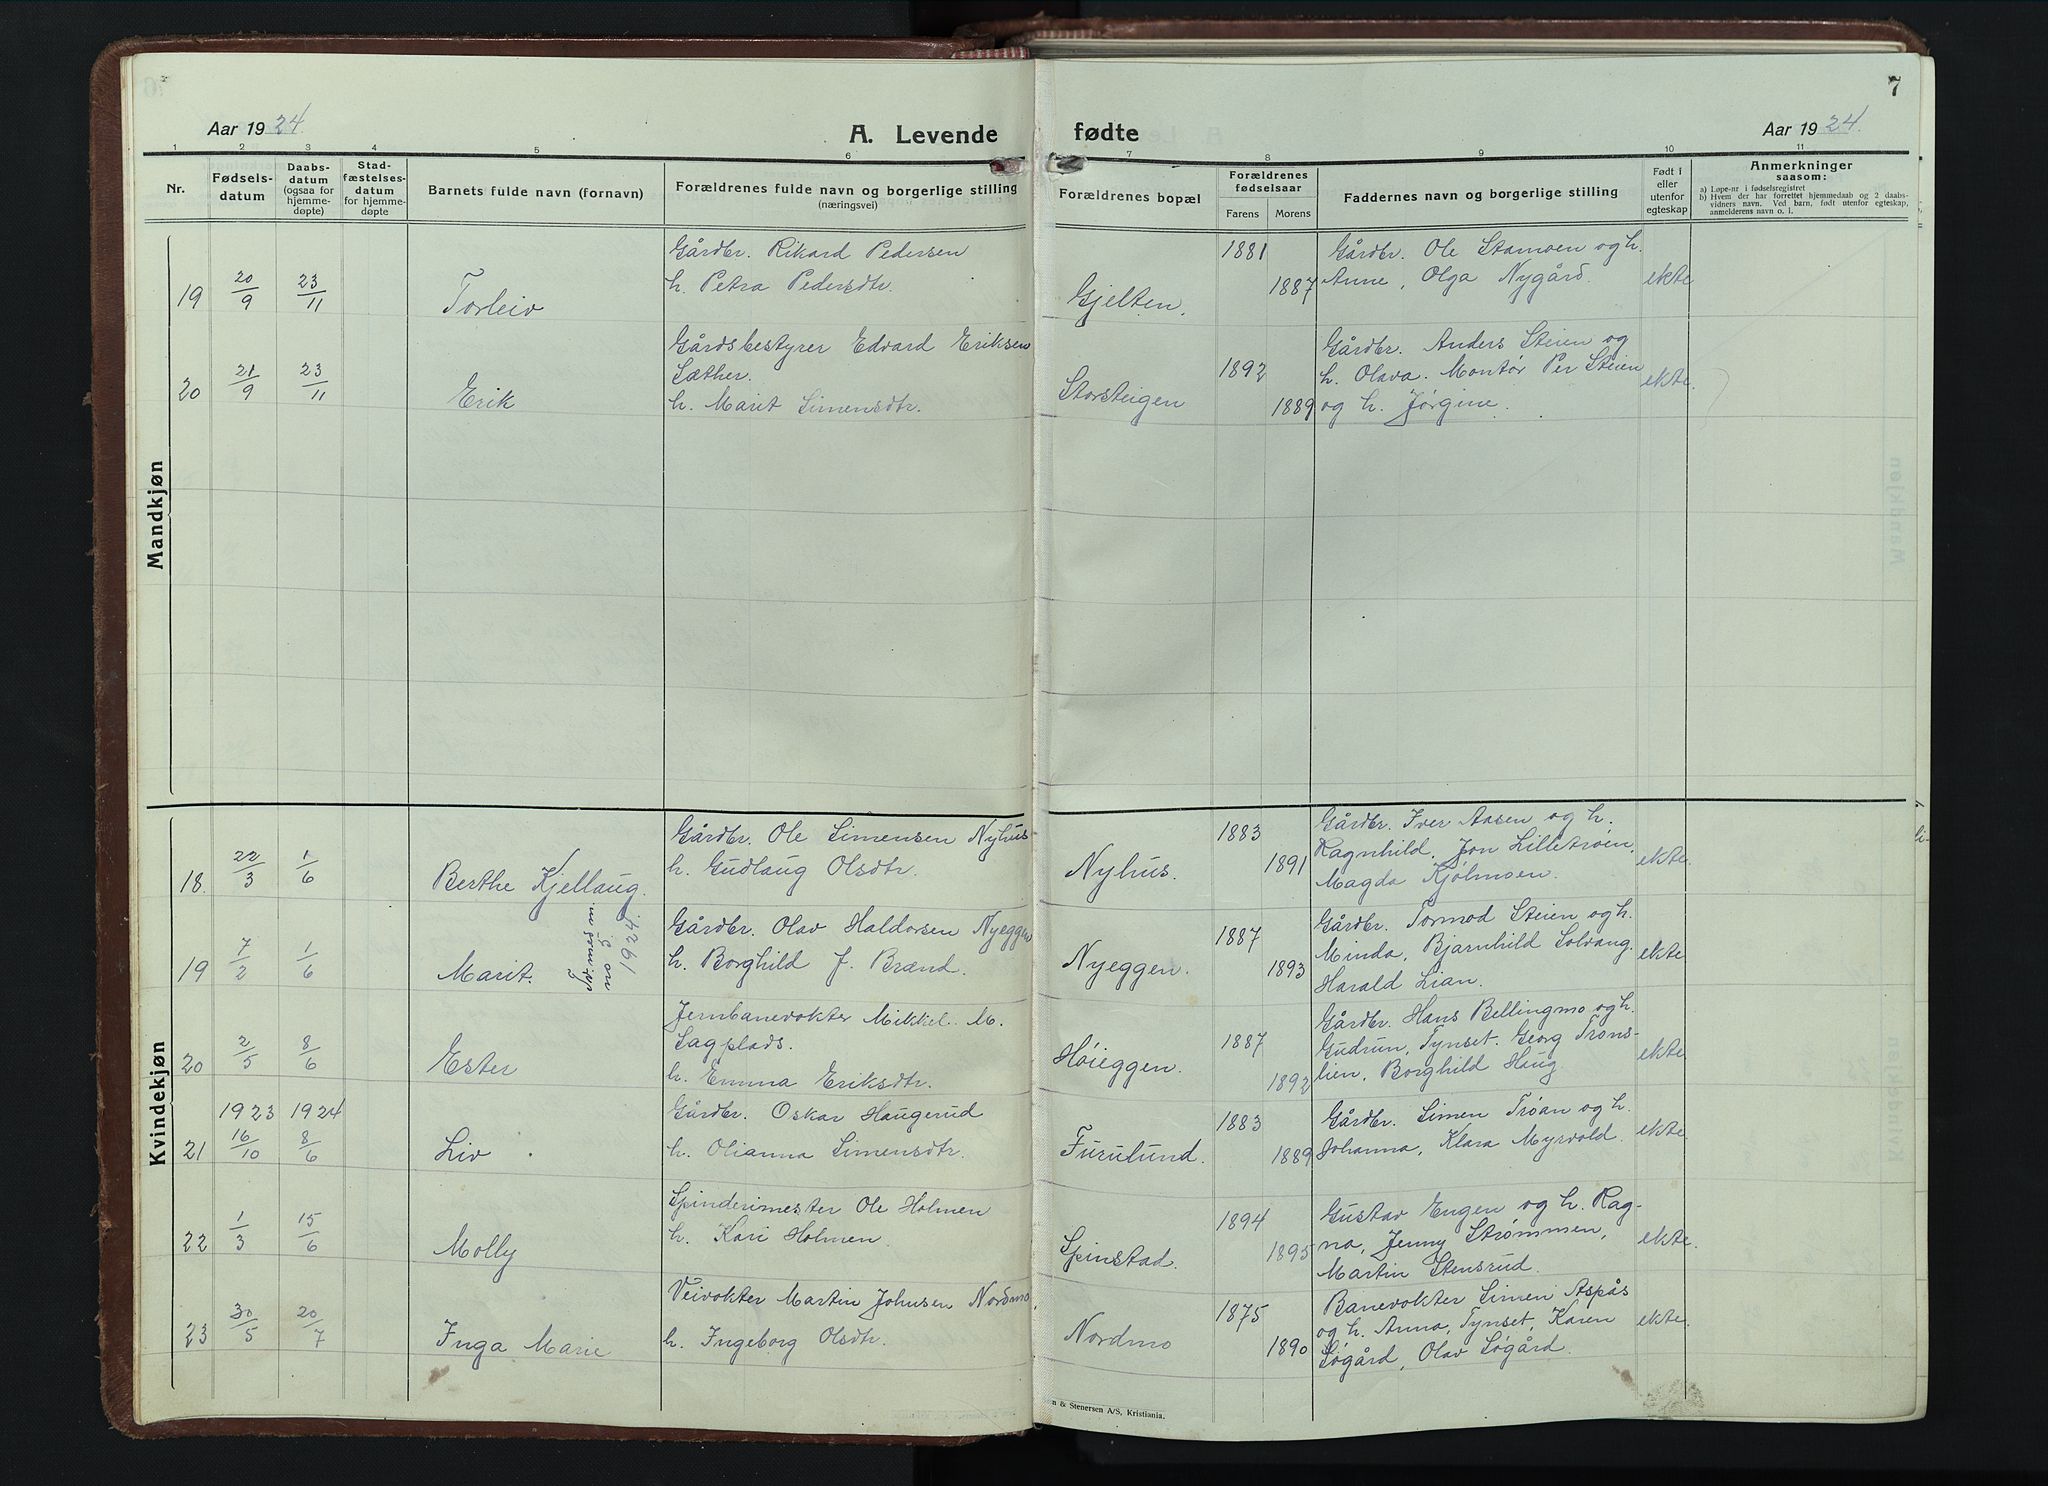 7
Aar 1924
A. Levende fødte
Aar 1924.
1 2 3 4 5 6 7 8 9 10 11
Nr.
Fødsels-
datum
Daabs-
datum
(ogsaa for
hjemme-
døpte)
Stad-
fæstelses-
datum
for hjemme-
døpte
Barnets fulde navn (fornavn)
Forældrenes fulde navn og borgerlige stilling
(næringsvei)
Forældrenes bopæl
Forældrenes
fødselsaar
Farens Morens
Faddernes navn og borgerlige stilling
Født i
eller
utenfor
egteskap
Anmerkninger
saasom:
a) Løpe-nr i fødselsregistret
b) Hvem der har forrettet hjemmedaab og 2 daabs-
vidners navn. Ved barn, født utenfor egteskap,
anmelderens navn o. l.
Mandkjøn
19 20/9 23/11 Torleiv
Gårdbr. Rikard Pedersen
h. Petra Pedersdtr.
Gjelten. 1881 1887
Gårdbr. Ole Stamoen og h.
Anne, Olga Nygård.
ekte
20 21/9 23/11 Erik
Gårdsbestyrer Edvard Eriksen
Sæther.
h. Marit Simensdtr.
Storsteigen 1892 1889
Gårdbr. Anders Steien og
h. Olava. Montør Per Steien
og h. Jørgine.
ekte.
Kvindekjøn
18. 22/3 1/6 Berthe Kjellaug.
Gårdbr. Ole Simensen Nyhus
h. Gudlaug Olsdtr.
Nyhus. 1883 1891
Gårdbr. Iver Aasen og h.
Ragnhild, Jon Lilletrøen,
Magda Kjølmoen.
ekte.
19 7/2 1/6 Marit.
1924.
Gårdbr. Olav Haldorsen Nyeggen
h. Borghild J. Brænd.
Nyeggen. 1887 1893
Gårdbr. Tormod Steien og h.
Minda, Bjarnhild Solvang.
Harald Lian.
ekte
20 2/5 8/6 Ester
Jernbanevokter Mikkel M.
Sagplads.
h. Emma Eriksdtr.
Høieggen. 1887 1892
Gårdbr. Hans Bellingmo og h.
Gudrun, Tynset. Georg Trøns-
lien, Borghild Haug
ekte
1923 1924
21 16/10 8/6 Liv
Gårdbr. Oskar Haugerud
h. Olianna Simensdtr.
Furulund. 1883 1889
Gårdbr. Simen Trøan og h.
Johanna, Klara Myrvold.
ekte.
22 1/3 15/6 Molly
Spinderimester Ole Holmen
h. Kari Holmen.
Spinstad. 1894 1895
Gustav Engen og h. Rag-
na, Jenny Strømmen,
Martin Stensrud.
ekte.
23 30/5 20/7 Inga Marie
Veivokter Martin Johnsen Nordmo,
h. Ingeborg Olsdtr.
Nordmo 1875 1890
Banevokter Simen Aspås
og h. Anna, Tynset, Karen
Søgård, Olav Søgård.
ekte.
& Stenersen A/S, Kristiania.